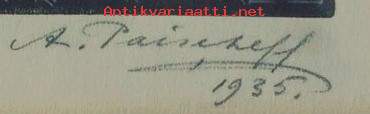 Antikvariaatti.net
A. Paischeff
1935.